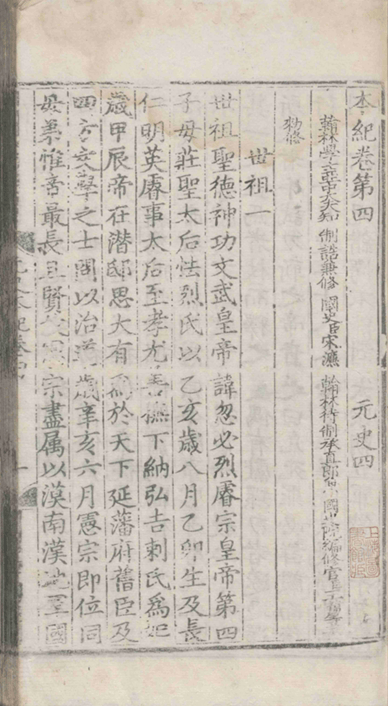 本紀卷第四 元史四
翰林學士亞中大夫知 制誥兼修 國史臣宋濂 翰林待制承直郎 國 院編修官臣王禕
勑修
世祖一
世祖聖德神功文武皇帝諱忽必烈睿宗皇帝第四
子母莊聖太后怯烈氏以乙亥歲八月乙卯生及長
仁明英睿事太后至孝尤善撫下納弘吉剌氏為妃
歲甲辰帝在潛邸思大有為於天下延藩府舊臣及
四方文學之士問以治道歲辛亥六月憲宗即位同
母弟惟帝最長且賢 憲宗盡屬以漠南漢地軍國